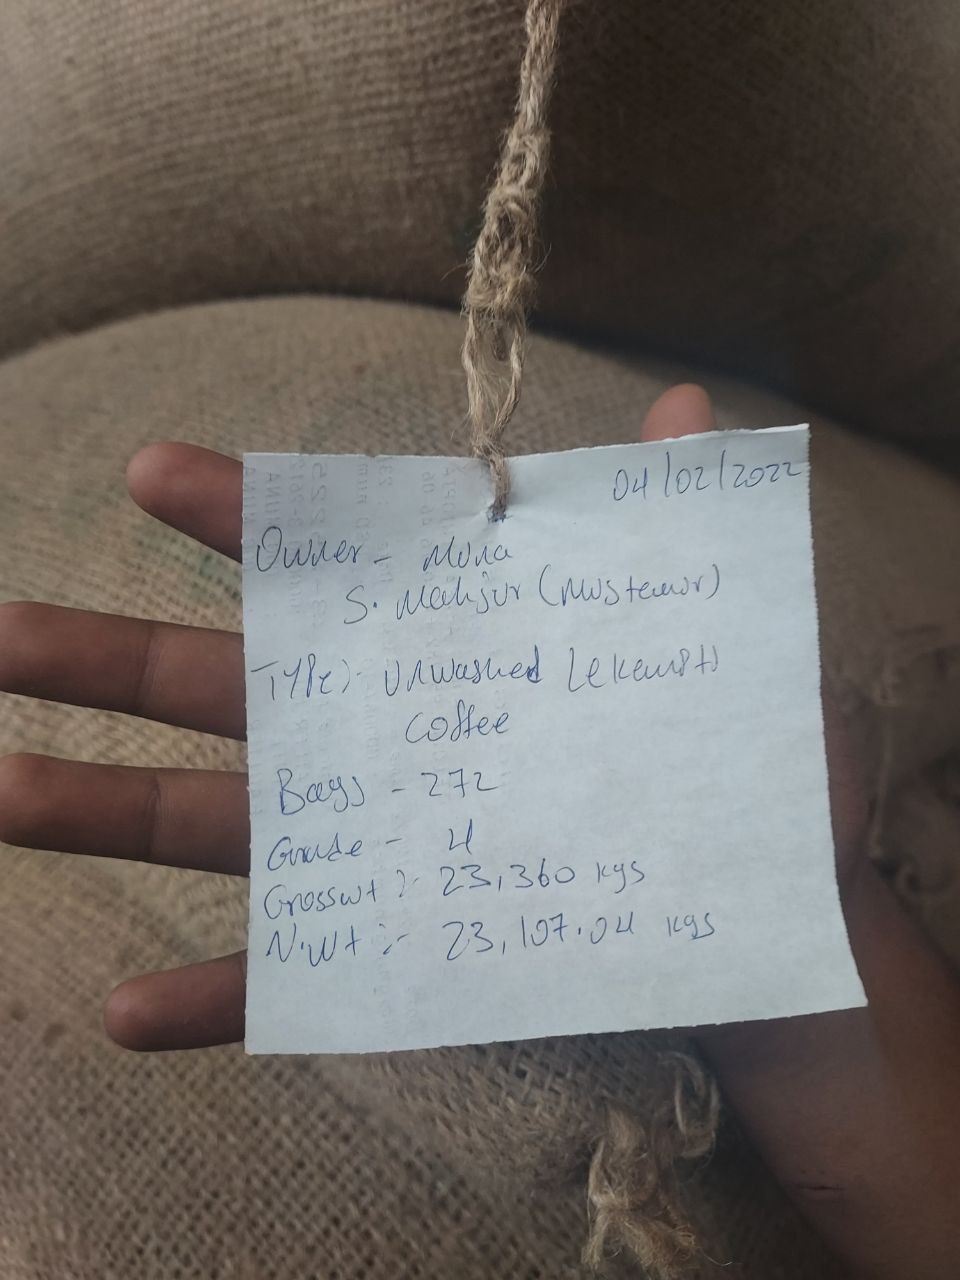 04/02/2022
Owner - Muna
S. Mahjur (Mustemir)
Type :- Unwashed Lekempti
Coffee
Bags - 272
Grade - 4
Grosswt :- 23,360 kgs
N.Wt :- 23,107.04 kgs